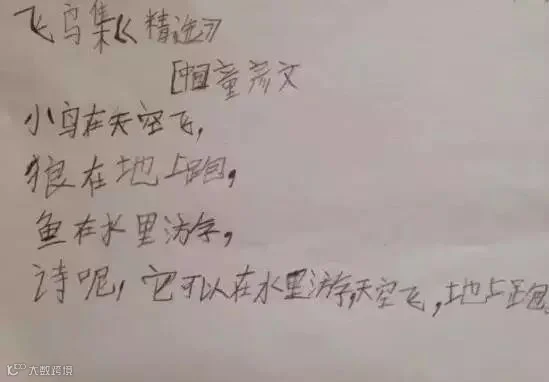 飞鸟集《精选》
[中国]童彦文
小鸟在天空飞,
狼在地上跑,
鱼在水里游,
诗呢,它可以在水里游,天空飞,地上跑。
大数跨境